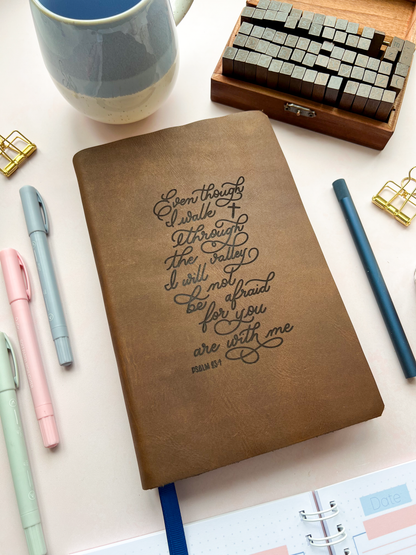 Even though
I walk
through
the valley
I will not
be afraid
for you
are with me
PSALM 23:4
Date